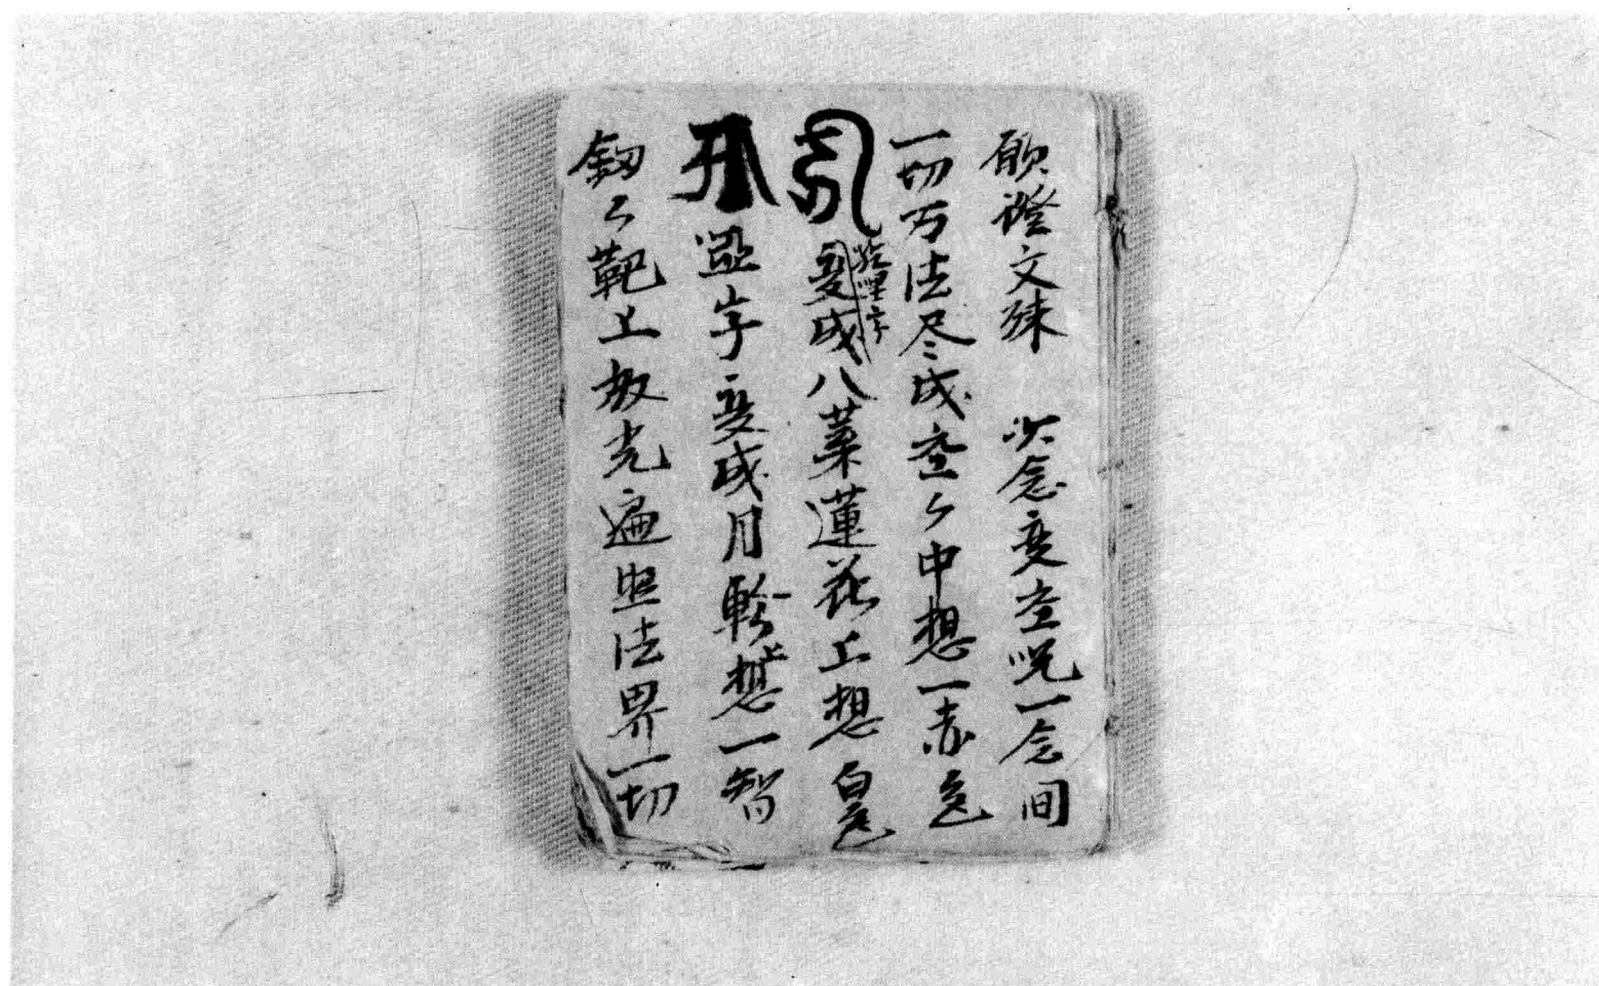 願證文殊　次念变空呪一念間
一切万法尽成空々中想一赤色
变成八葉蓮花上想白色
字变成月輪上想一智
釼々靶上放光遍照法界一切